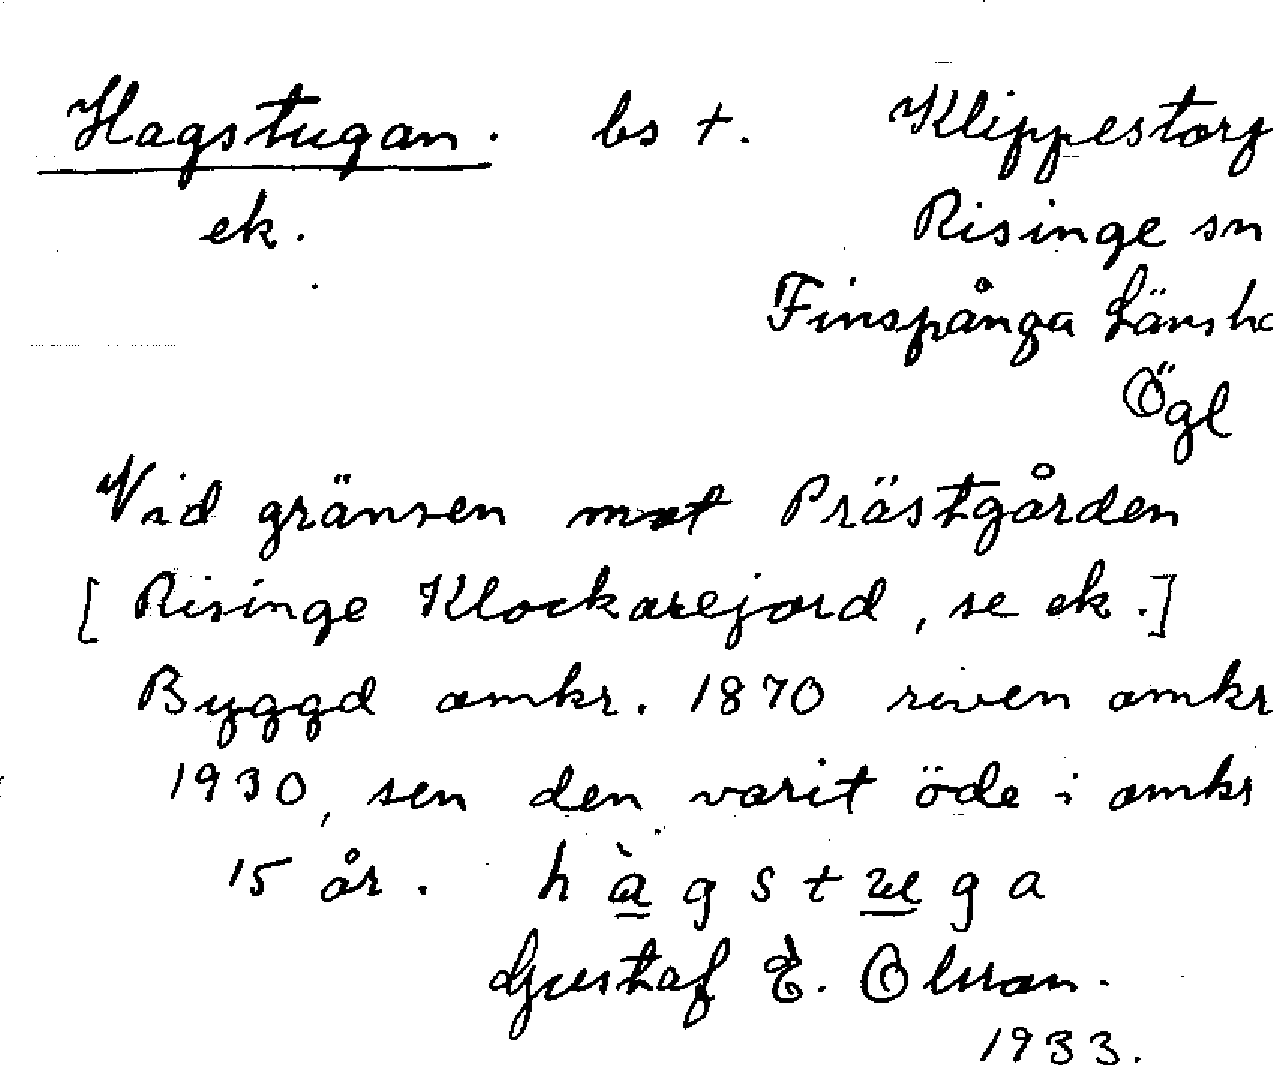 Hagstugan. bs +. Klippestorp
ek. Risinge sn
Finspånga Länshd
Ögl
Vid gränsen mot Prästgården
[ Risinge Klockarejord, se ek.]
Byggd omkr. 1870 riven omkr
1930, sen den varit öde i omkr
15 år. hàgstuga
Gustaf E. Olsson.
1933.